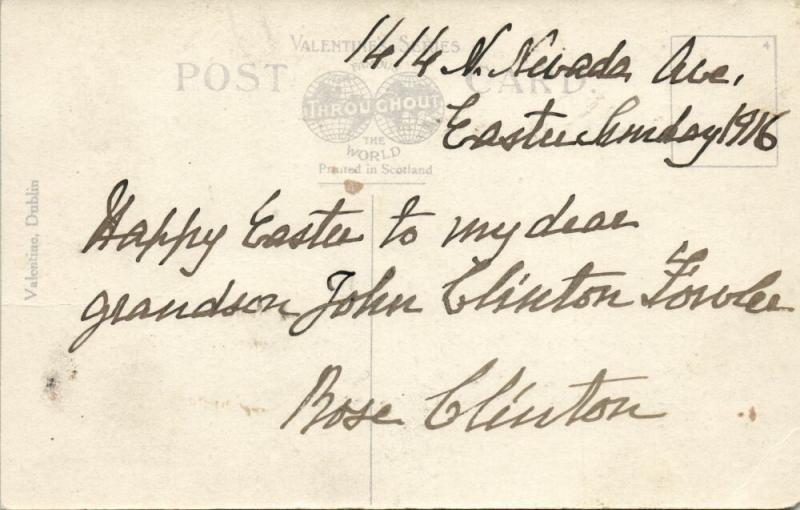 VALENTINE'S SERIES
POST CARD.
FAMOUS
THROUGHOUT
THE
WORLD
Printed in Scotland
4
Valentine, Dublin
1414 N. Nevada Ave.
Easter Sunday 1916
Happy Easter to my dear
grandson John Clinton Fowler
Rose Clinton